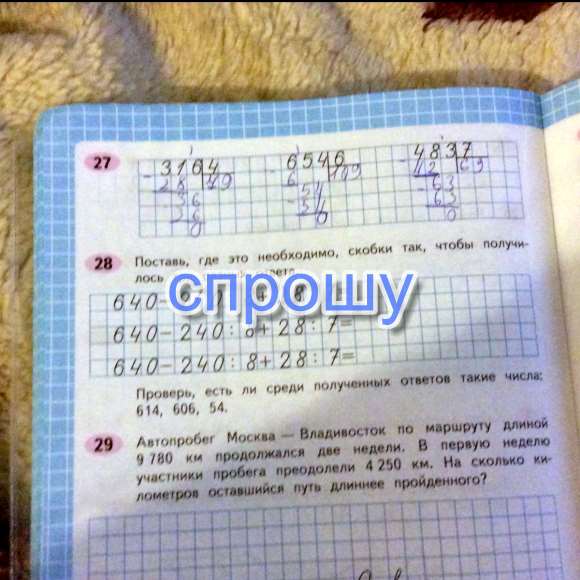 27
3164 4 6546 6 4837 7
28 79 6 109 42 69
36 54 63
36 54 63
0 0 0
28 Поставь, где это необходимо, скобки так, чтобы получи-
лось
спрошу
640-
640-240:8+28:7=
640-240:8+28:7=
Проверь, есть ли среди полученных ответов такие числа:
614, 606, 54.
29 Автопробег Москва — Владивосток по маршруту длиной
9 780 км продолжался две недели. В первую неделю
участники пробега преодолели 4 250 км. На сколько ки-
лометров оставшийся путь длиннее пройденного?